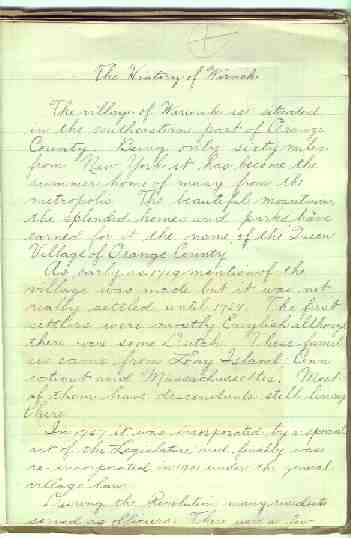 The History of Warwick
The village of Warwick is situated
in the southeastern part of Orange
County. Being only sixty miles
from New York it has become the
summer home of many from the
metropolis. The beautiful mountains
the splendid homes and parks have
earned for it the name of the Queen
Village of Orange County
As early as 1719 mention of the
village was made but it was not
really settled until 1764. The first
settlers were mostly English although
there were some Dutch. These famil
ies came from Long Island Conn
ecticut and Massachusettes. Most
of them have descendents still living
there.
In 1867 it was incorporated by a special
act of the Legislature and finally was
re-incorporated in 1901 under the general
village law.
During the Revolution many residents
served as officers. There were a few